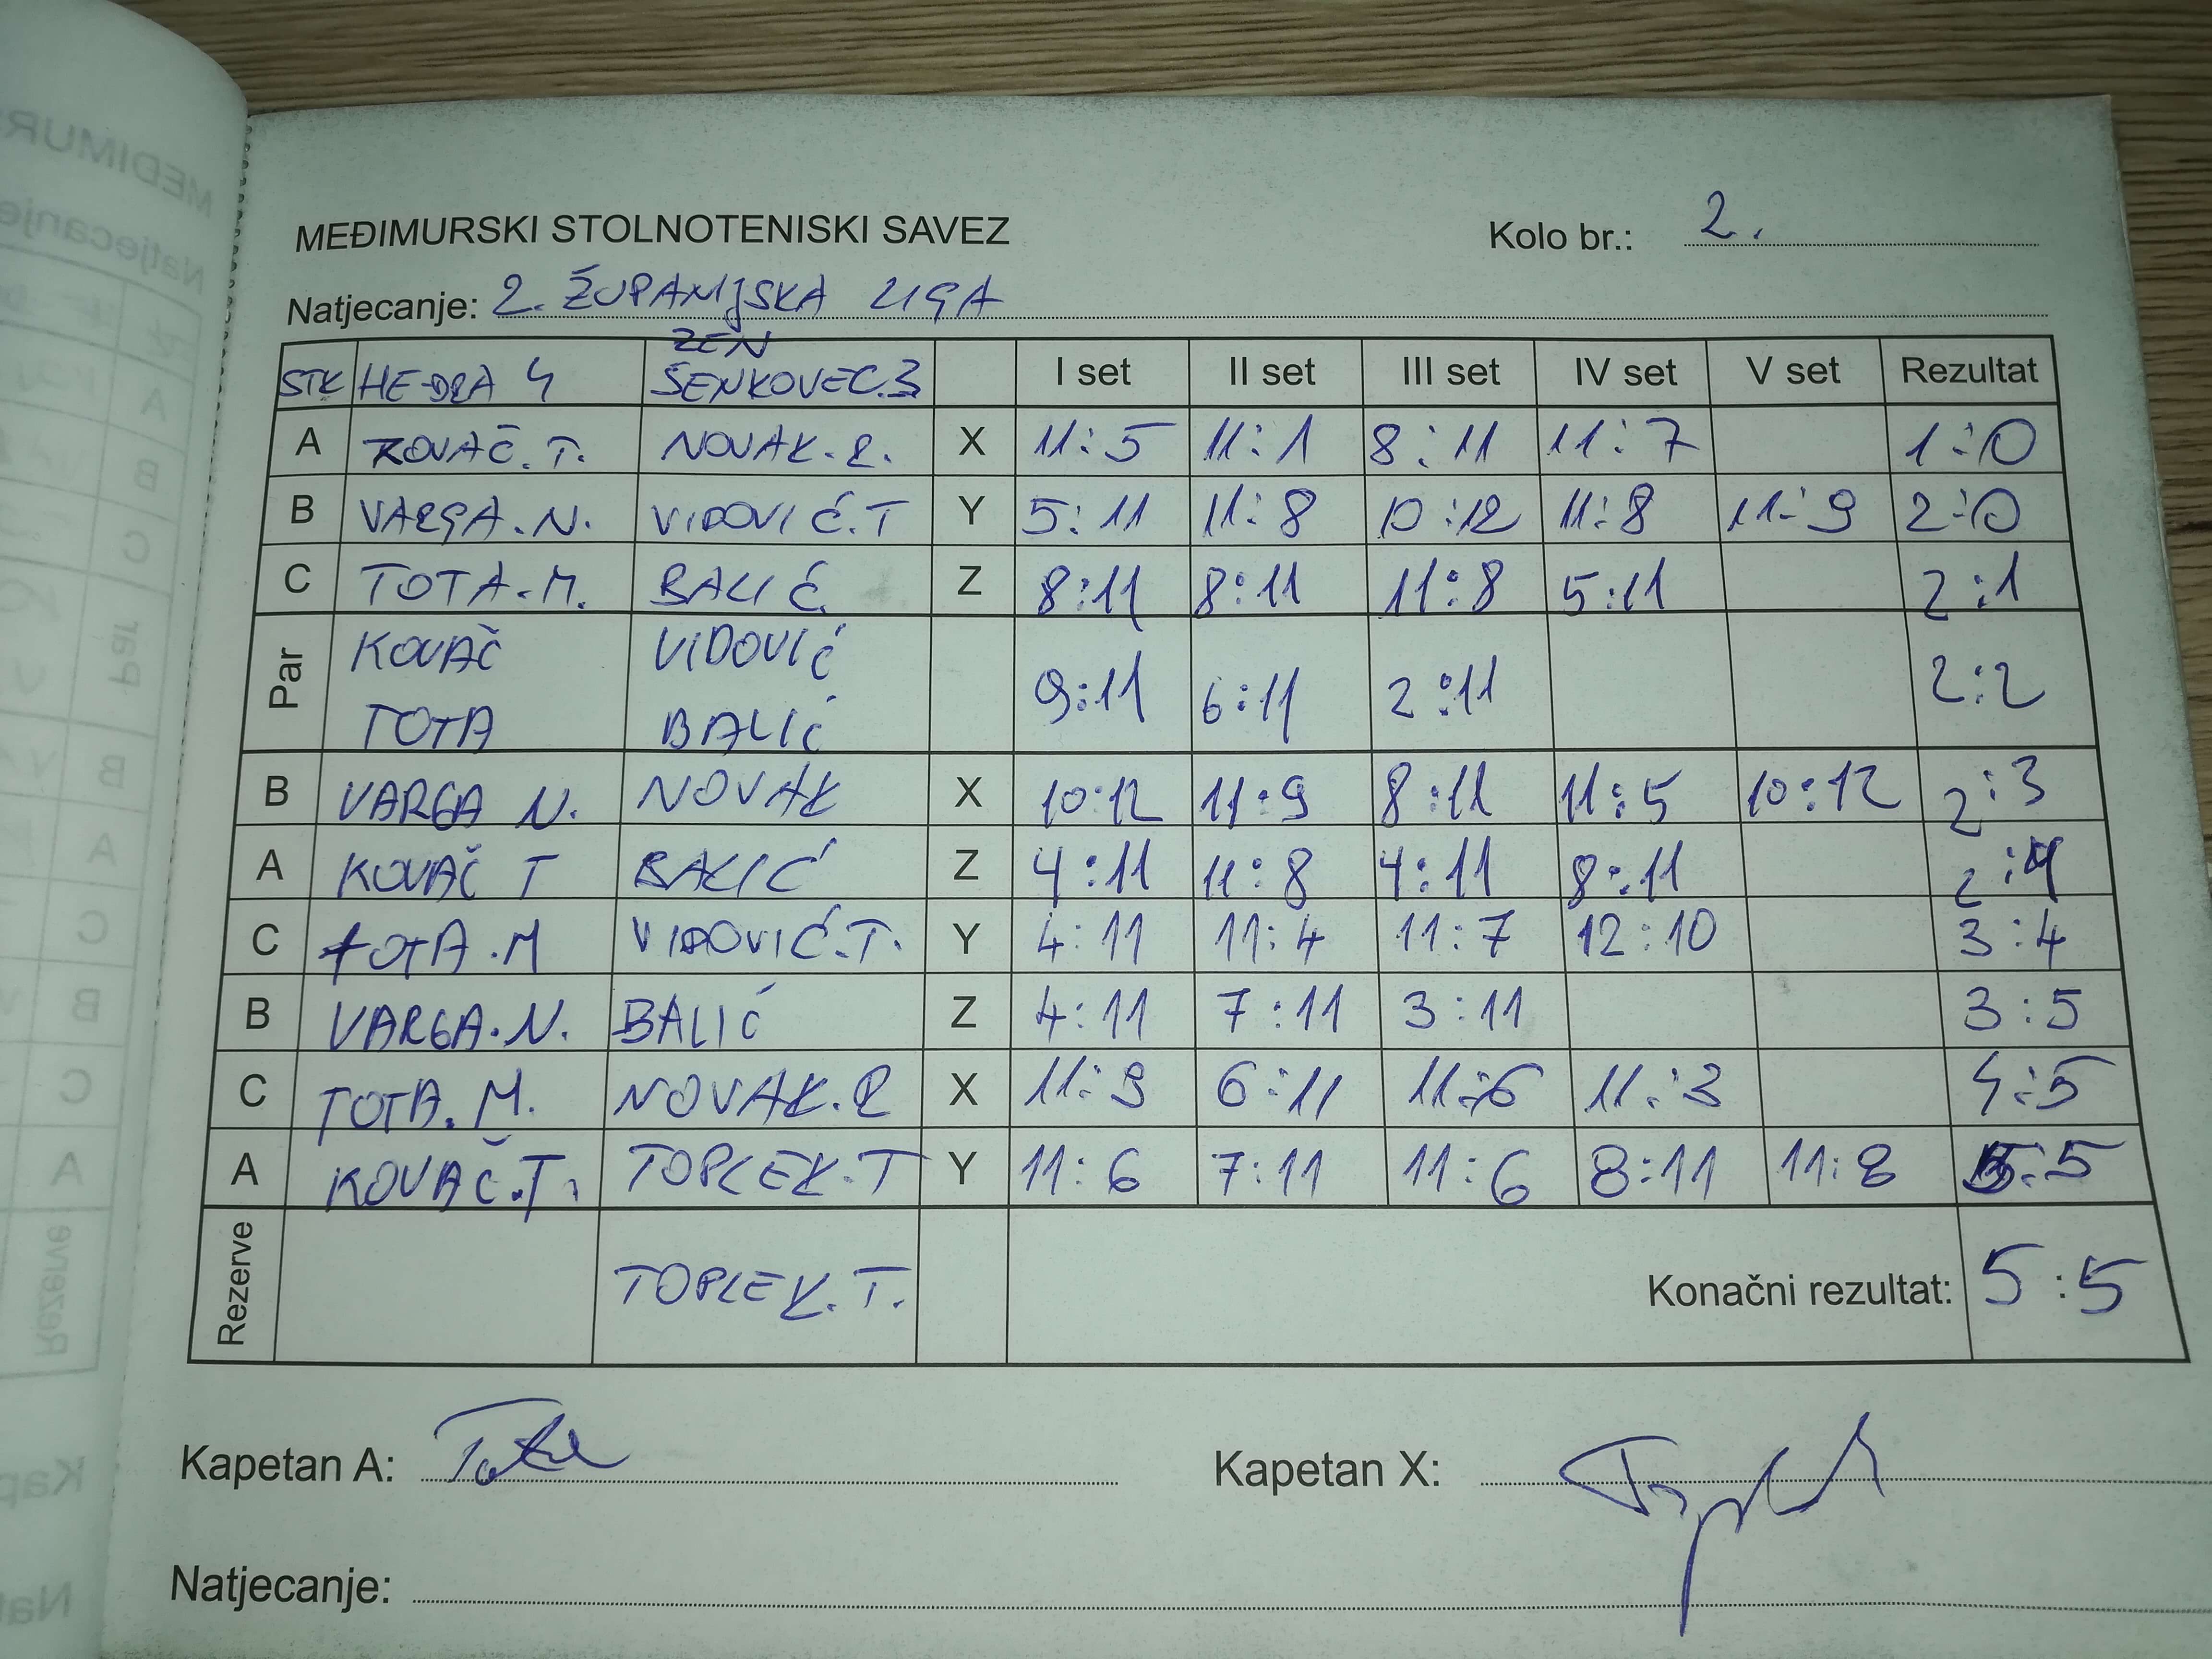 MEĐIMURSKI STOLNOTENISKI SAVEZ Kolo br.: 2.
Natjecanje: 2. ŽUPANIJSKA LIGA
ZEN
STK HEĐRA 4 ŠENKOVEC 3 I set II set III set IV set V set Rezultat
A KOVAČ.T. NOVAK.R. X 11:5 11:1 8:11 11:7 1:0
B VARGA.N. VIDOVIĆ.T Y 5:11 11:8 10:12 11:8 11:9 2:0
C TOTA.M. BALIĆ Z 8:11 8:11 11:8 5:11 2:1
Par KOVAČ VIDOVIĆ
TOTA BALIĆ 9:11 6:11 2:11 2:2
B VARGA N. NOVAK X 10:12 11:9 8:11 11:5 10:12 2:3
A KOVAČ T BALIĆ Z 4:11 11:8 4:11 8:11 2:4
C TOTA.M VIDOVIĆ.T. Y 4:11 11:4 11:7 12:10 3:4
B VARGA.N. BALIĆ Z 4:11 7:11 3:11 3:5
C TOTA.M. NOVAK.R X 11:9 6:11 11:6 11:3 4:5
A KOVAČ.T. TOPLEK.T Y 11:6 7:11 11:6 8:11 11:8 5:5
Rezerve TOPLEK.T. Konačni rezultat: 5:5
Kapetan A: Tota Kapetan X:
Natjecanje: